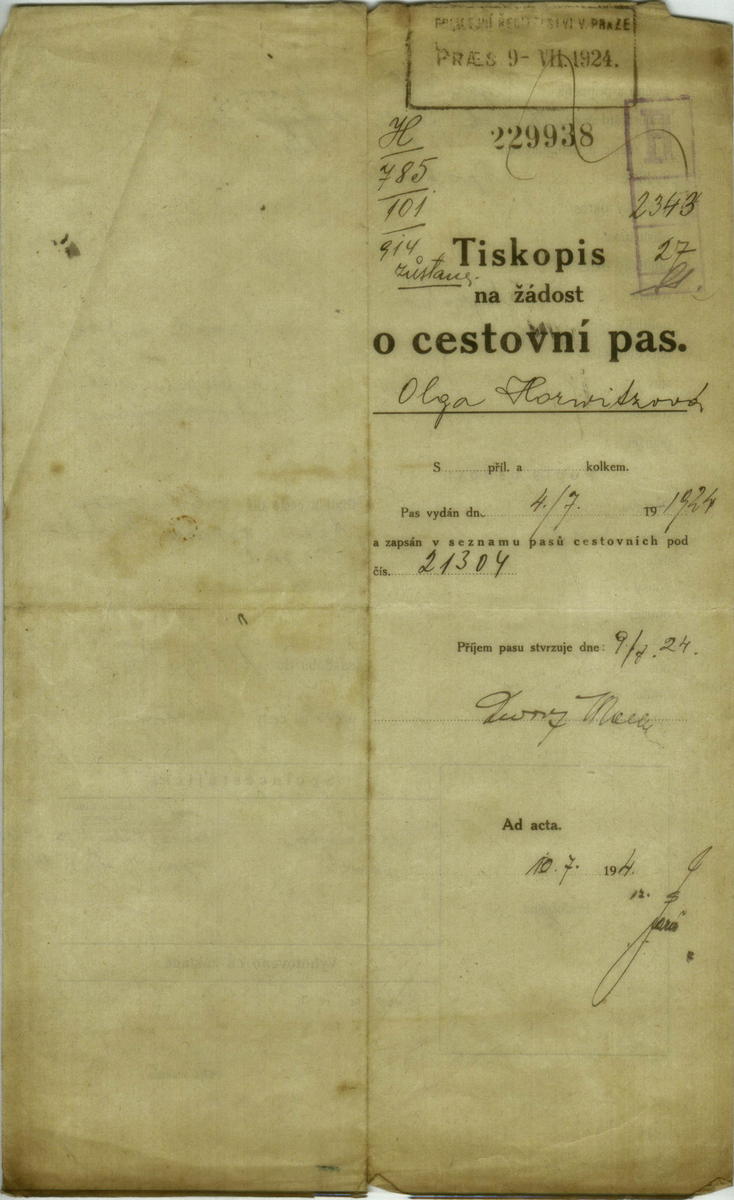 POLICEJNÍ ŘEDITELSTVÍ V PRAZE
PRÆS 9-VII.1924.
229938
H
785
101
914
2343
27
Tiskopis
na žádost
o cestovní pas.
Olga Horwitzová
S příl. a kolkem.
Pas vydán dne 4./7. 19 1924
a zapsán v seznamu pasů cestovních pod
čís. 21304
Příjem pasu stvrzuje dne: 9/7. 24.
Ad acta.
10. 7. 194.